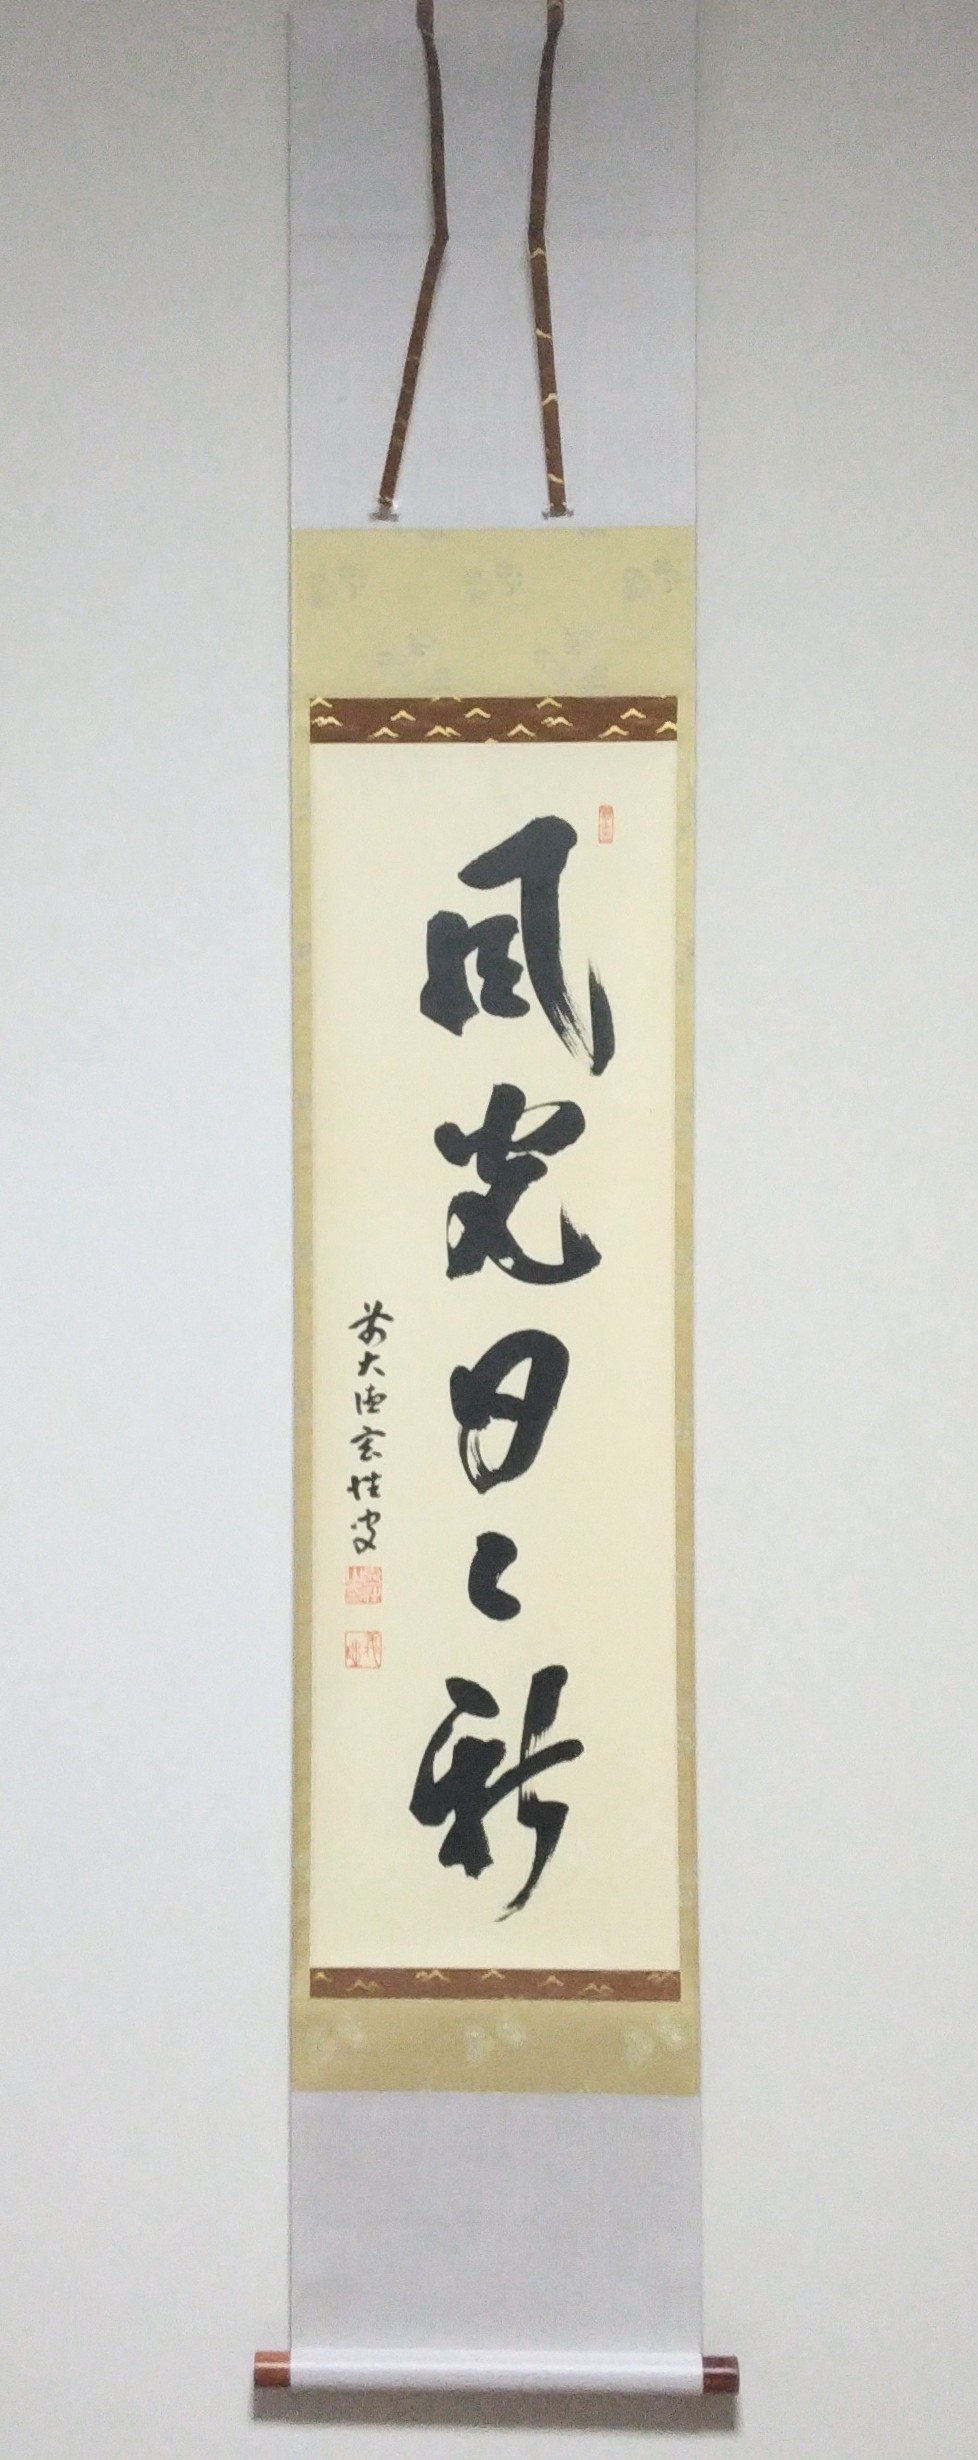 風光日々新
前大徳玄性叟